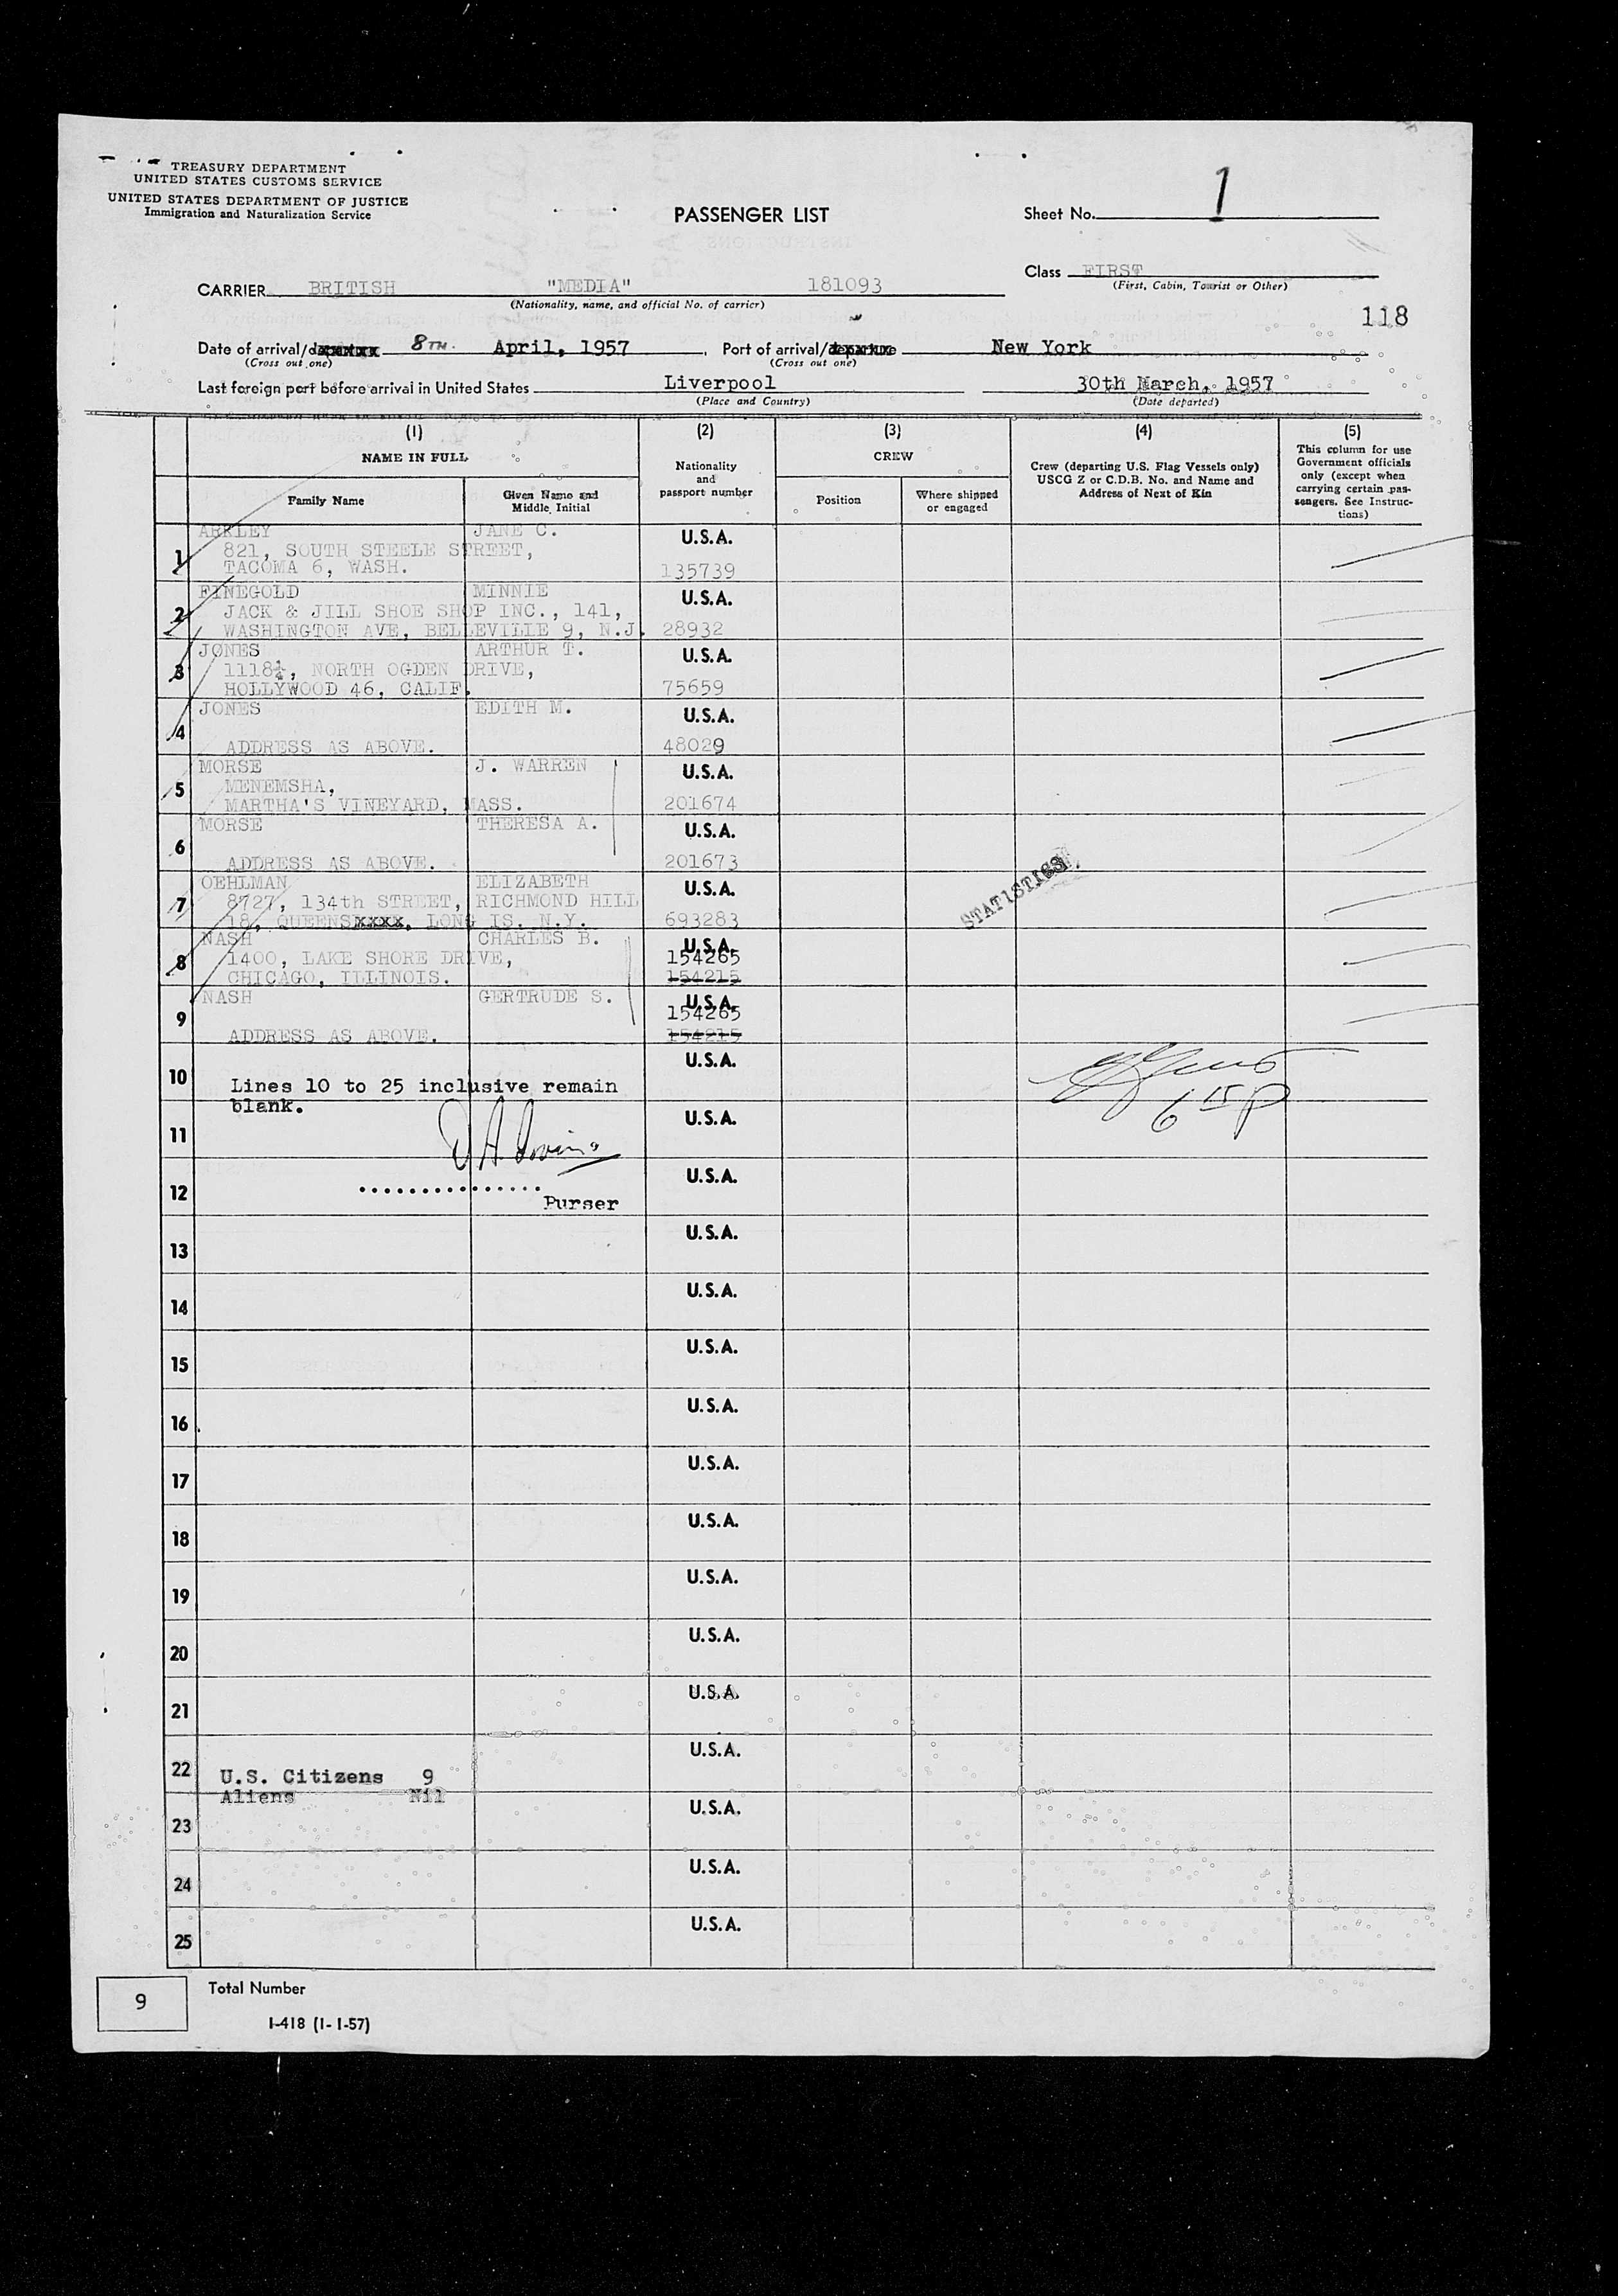 TREASURY DEPARTMENT
UNITED STATES CUSTOMS SERVICE
UNITED STATES DEPARTMENT OF JUSTICE
Immigration and Naturalization Service
PASSENGER LIST
Sheet No. 1
Class FIRST
(First, Cabin, Tourist or Other)
CARRIER BRITISH "MEDIA" 181093
(Nationality, name, and official No. of carrier)
118
Date of arrival/dxxxxxx 8TH. April, 1957, Port of arrival/departure New York
(Cross out one) (Cross out one)
Last foreign port before arrival in United States Liverpool 30th March, 1957
(Place and Country) (Date departed)
(1) (2) (3) (4) (5)
NAME IN FULL
Family Name
Given Name and
Middle Initial
Nationality
and
passport number
CREW
Position
Where shipped
or engaged
Crew (departing U.S. Flag Vessels only)
USCG Z or C.D.B. No. and Name and
Address of Next of Kin
This column for use
Government officials
only (except when
carrying certain pas-
sengers. See Instruc-
tions)
1 ARKLEY JANE C. U.S.A.
821, SOUTH STEELE STREET,
TACOMA 6, WASH. 135739
2 FINEGOLD MINNIE U.S.A.
JACK & JILL SHOE SHOP INC., 141,
WASHINGTON AVE, BELLEVILLE 9, N.J. 28932
3 JONES ARTHUR T. U.S.A.
1118¼, NORTH OGDEN DRIVE,
HOLLYWOOD 46, CALIF. 75659
4 JONES EDITH M. U.S.A.
ADDRESS AS ABOVE. 48029
5 MORSE J. WARREN U.S.A.
MENEMSHA,
MARTHA'S VINEYARD, MASS. 201674
6 MORSE THERESA A. U.S.A.
ADDRESS AS ABOVE. 201673
7 OEHLMAN ELIZABETH U.S.A.
8727, 134th STREET, RICHMOND HILL
18, QUEENSXXXX, LONG IS. N.Y. 693283
STATISTICS
8 NASH CHARLES B. U.S.A.
1400, LAKE SHORE DRIVE, 154265
CHICAGO, ILLINOIS. 154215
9 NASH GERTRUDE S. U.S.A.
154265
ADDRESS AS ABOVE. 154215
10 U.S.A.
Lines 10 to 25 inclusive remain
blank.
6 15 p
11 U.S.A.
12 U.S.A.
Purser
13 U.S.A.
14 U.S.A.
15 U.S.A.
16 U.S.A.
17 U.S.A.
18 U.S.A.
19 U.S.A.
20 U.S.A.
21 U.S.A.
22 U.S.A.
U.S. Citizens 9
Aliens Nil
23 U.S.A.
24 U.S.A.
25 U.S.A.
9 Total Number
I-418 (1-1-57)